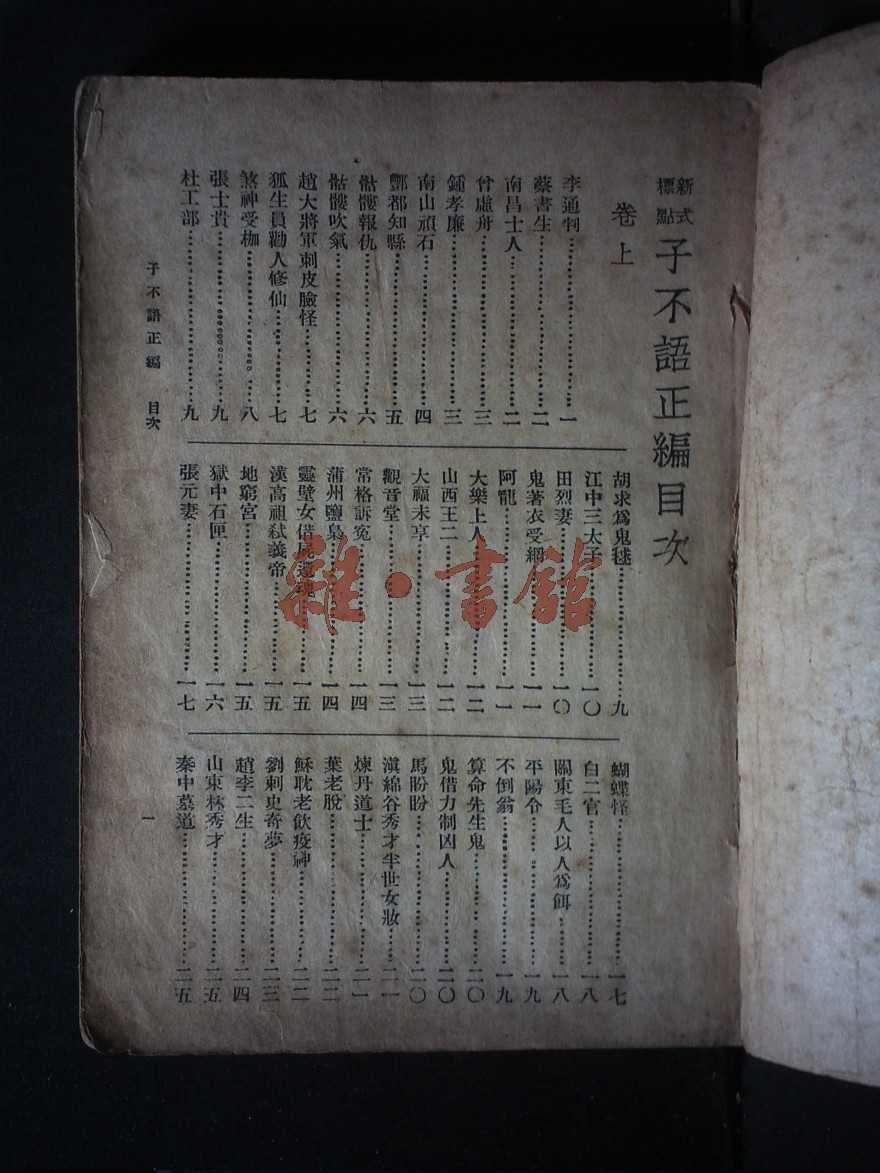 新式標點 子不語正編目次
卷上
李通判……一
蔡書生……二
南昌士人……二
曾虛舟……三
鍾孝廉……三
南山頑石……四
酆都知縣……五
骷髏報仇……六
骷髏吹氣……六
趙大將軍刺皮臉怪……七
狐生員勸人修仙……七
煞神受枷……八
張士貴……九
杜工部……九
胡求為鬼毬……九
江中三太子……一〇
田烈妻……一〇
鬼著衣受網……一一
阿龍……一一
大樂上人……一二
山西王二……一二
大福未享……一三
觀音堂……一三
常格訴冤……一四
蒲州鹽梟……一四
靈璧女借屍還魂……一五
漢高祖弒義帝……一五
地窮宮……一五
獄中石匣……一六
張元妻……一七
蝴蝶怪……一七
白二官……一八
關東毛人以人為餌……一八
平陽令……一九
不倒翁……一九
算命先生鬼……二〇
鬼借力制凶人……二〇
馬盼盼……二〇
滇綿谷秀才半世女妝……二一
煉丹道士……二一
葉老脫……二二
蘇耽老飲疫神……二二
劉刺史奇夢……二三
趙李二生……二四
山東林秀才……二五
秦中墓道……二五
子不語正編 目次
一
雜·書館